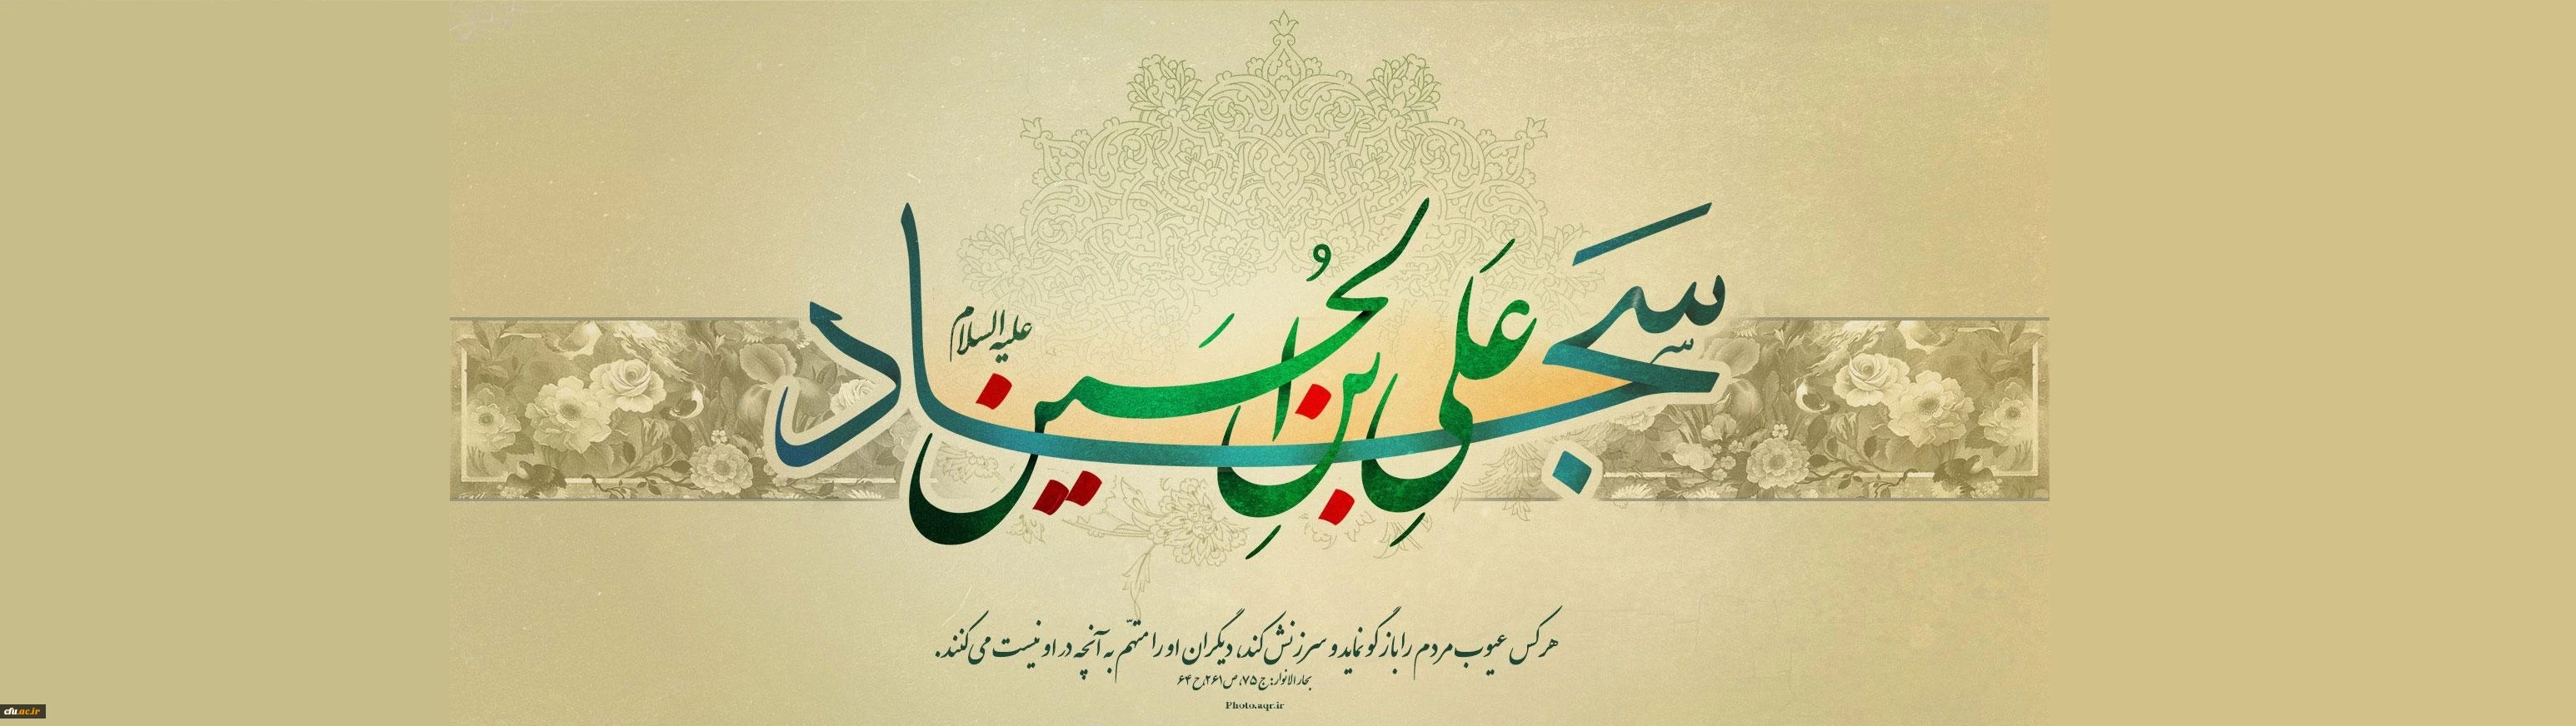 سَجّاد
عَلیِّ بنِ الحُسَین
علیه‌السلام
هر کس عیوب مردم را بازگو نماید و سرزنش کند، دیگران او را متهّم به آنچه در او نیست می‌کنند.
بحارالانوار: ج ۷۵، ص ۲۶۱، ح ۶۴
Photo.aqr.ir
cfu.ac.ir